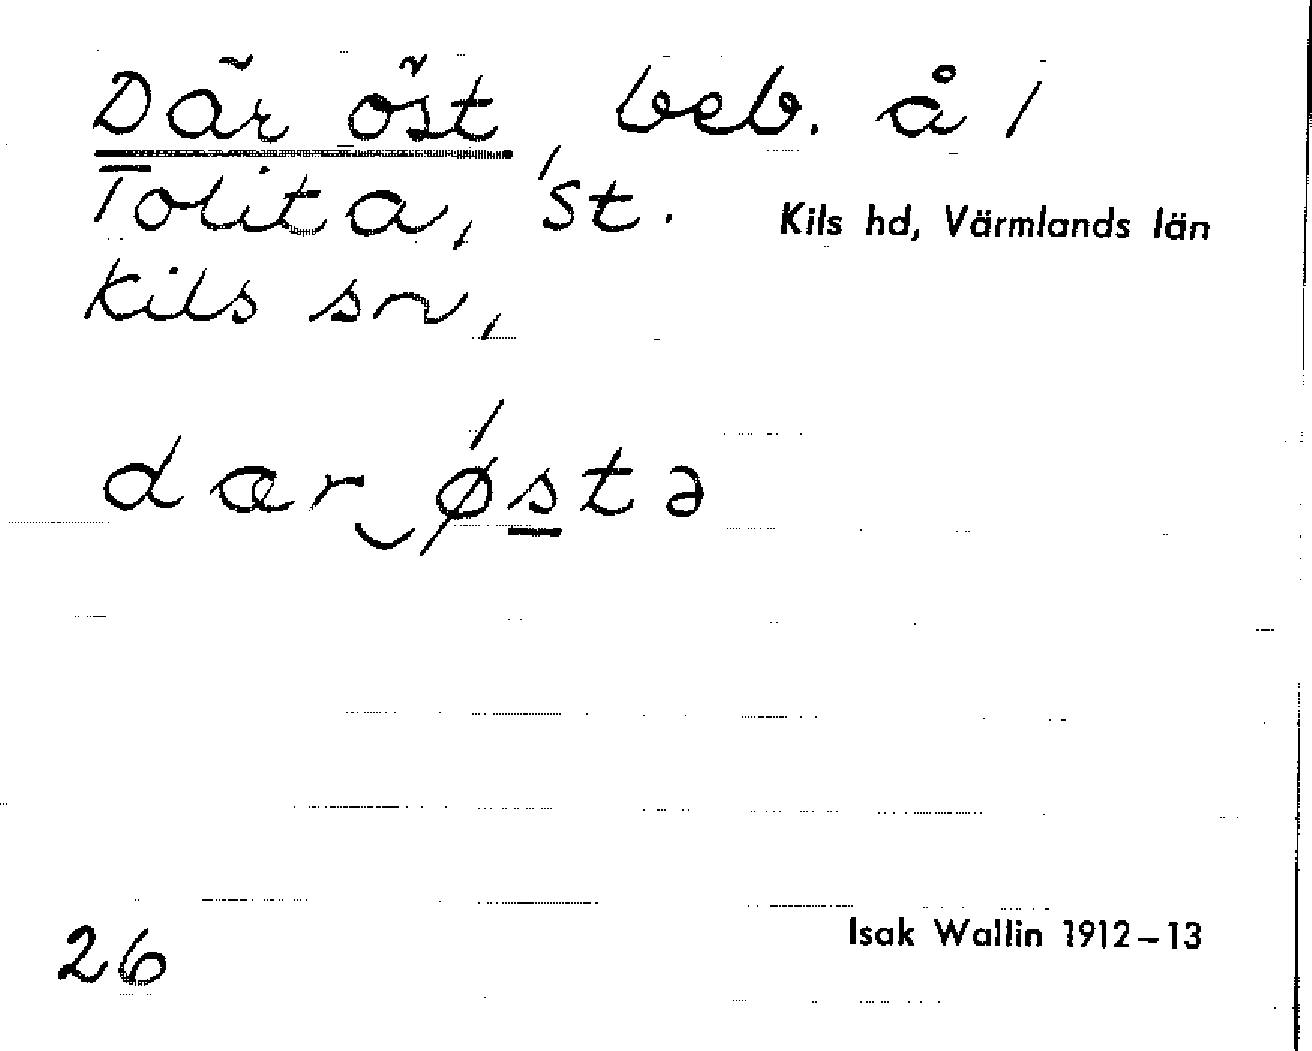 Där öst, beb. å 1
Tolita, St.
Kils hd, Värmlands län
Kils sn,
dar‿ǿstə
26
Isak Wallin 1912–13